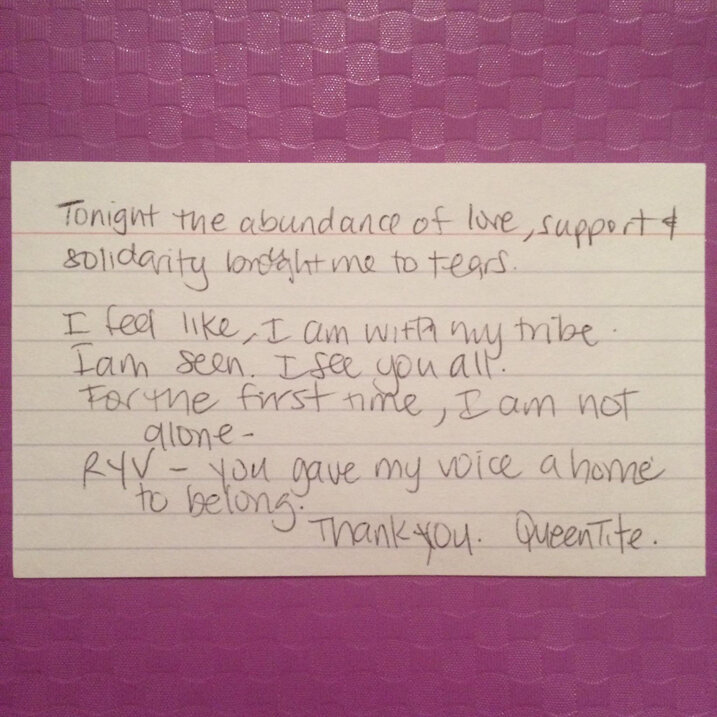 Tonight the abundance of love, support &
solidarity brought me to tears.
I feel like, I am with my tribe.
I am seen. I see you all.
For the first time, I am not
alone-
RYV - you gave my voice a home
to belong.
Thank you. QueenTite.